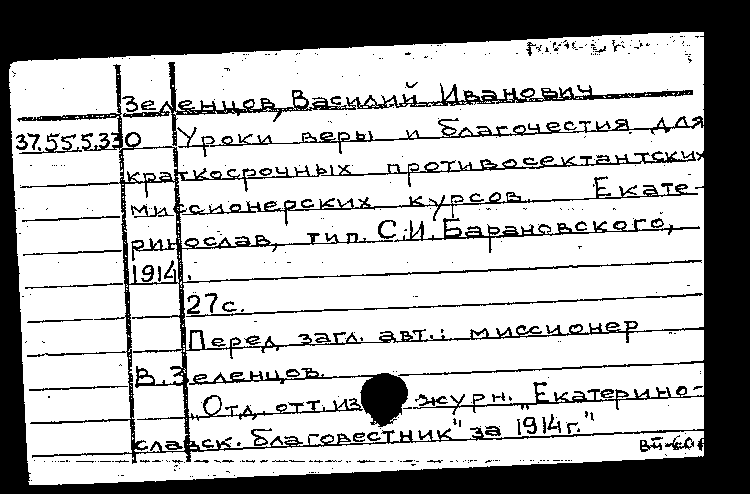 Зеленцов, Василий Иванович
37.55.5.330 Уроки веры и благочестия для
краткосрочных противосектантских
миссионерских курсов. Екате-
ринослав, тип. С.И. Барановского,
1914.
27с.
Перед загл. авт.: миссионер
В. Зеленцов.
"Отд. отт. из журн. "Екатерино-
славск. благовестник" за 1914г."